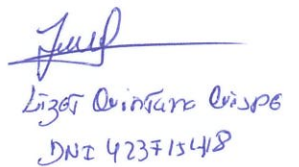 Lizet Quintana Quispe
DNI 42371548